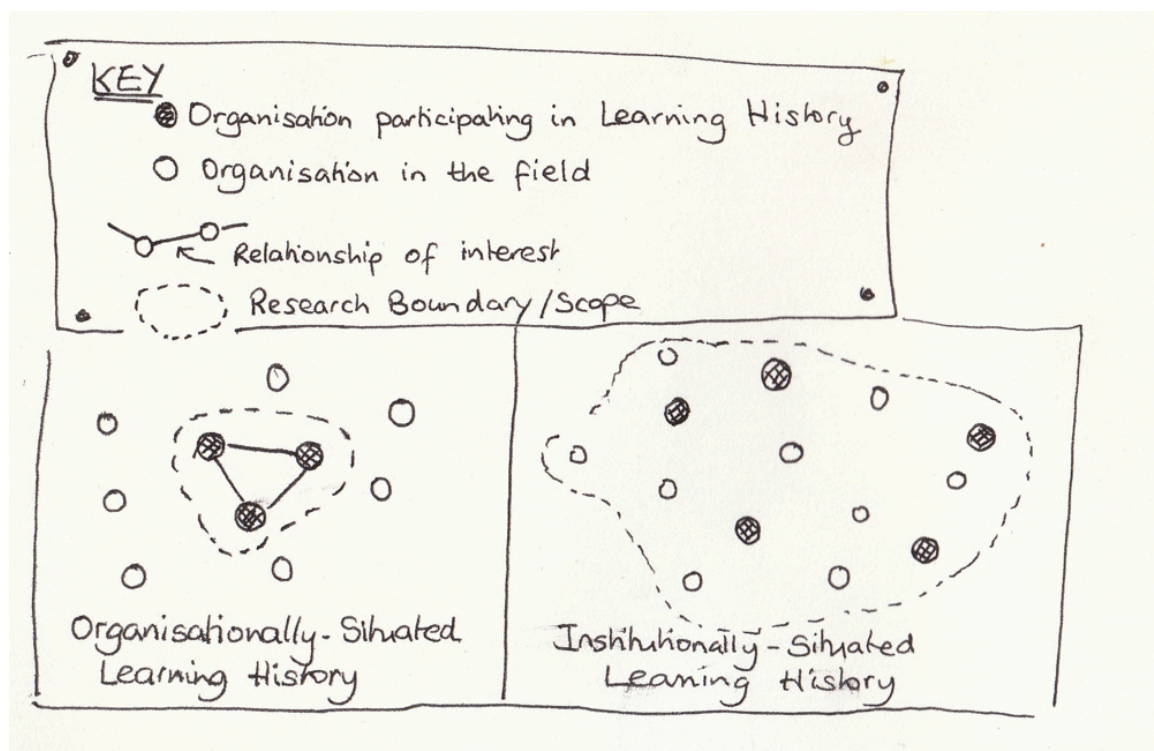 KEY
Organisation participating in Learning History
Organisation in the field
Relationship of interest
Research Boundary/Scope
Organisationally-Situated
Learning History
Institutionally-Situated
Learning History